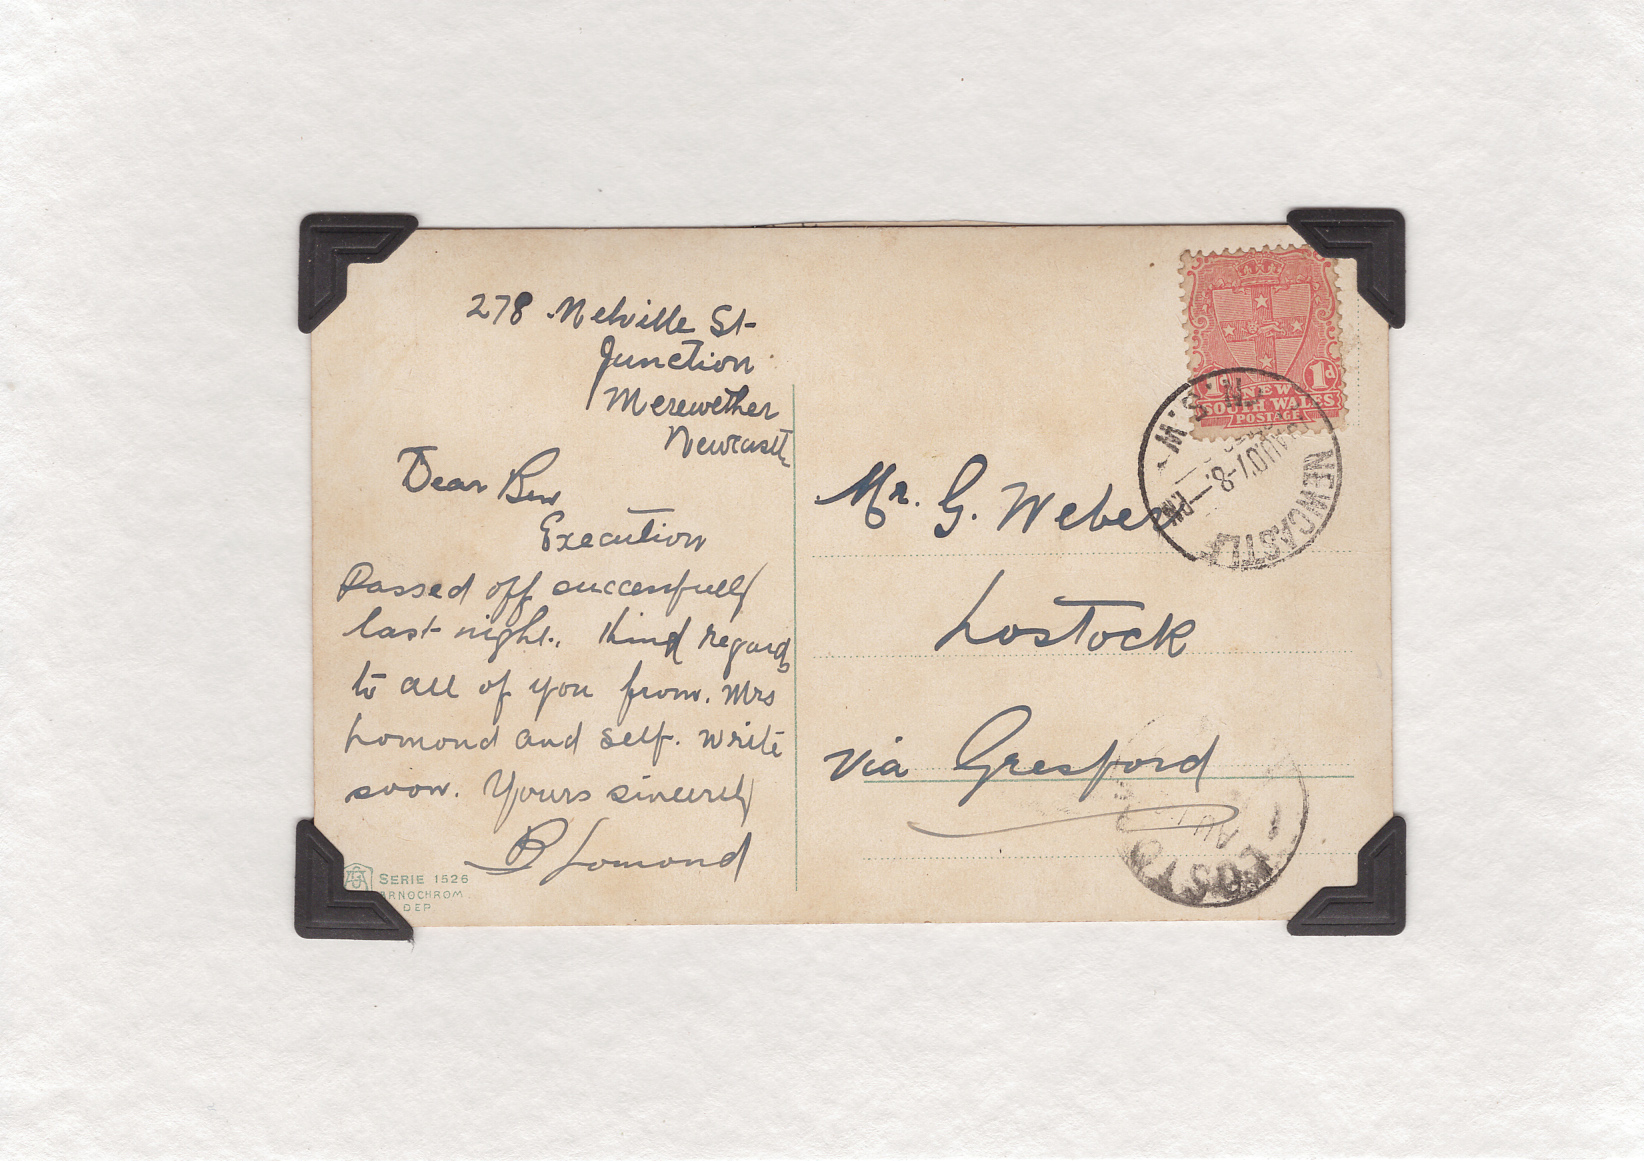 278 Melville St
Junction
Merewether
Newcastle
Dear Ben
Execution
Passed off successfully
last night. Kind regards
to all of you from Mrs
Lomond and self. Write
soon. Yours sincerely
B Lomond
SERIE 1526
DEP
1d 1d
NEW
SOUTH WALES
POSTAGE
NEWCASTLE
N.S.W
AU 07
8
PM
Mr. G. Weber
Lostock
via Gresford
LOSTO
AU